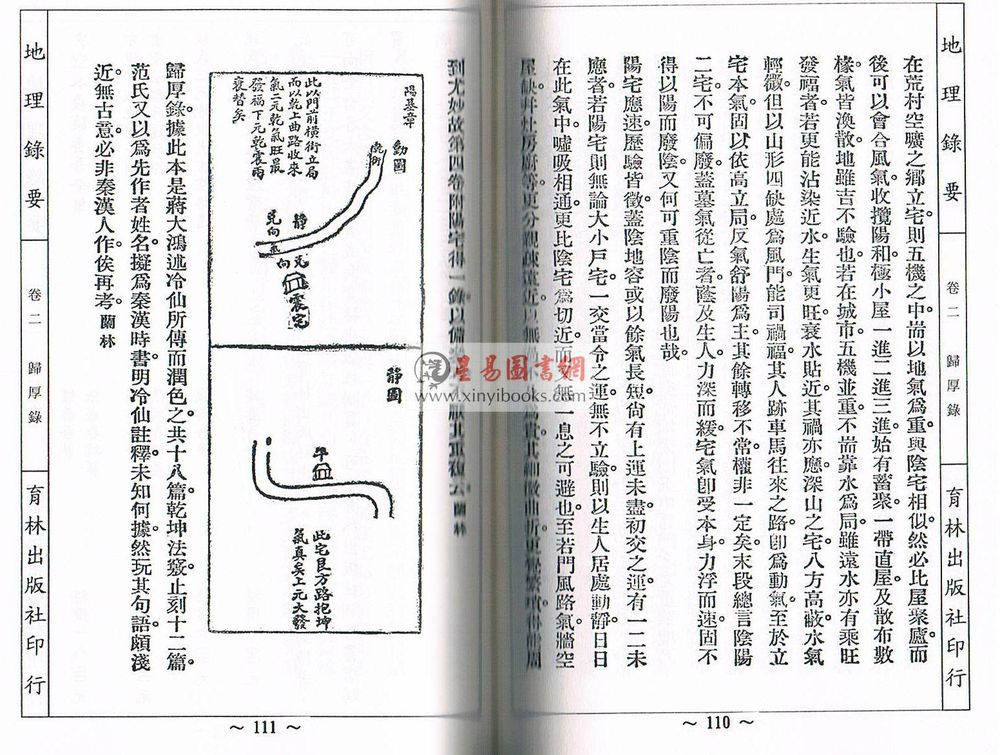 地理錄要
卷二
歸厚錄
育林出版社印行
在荒村空曠之鄉立宅則五機之中耑以地氣為重與陰宅相似然必比屋聚廬而
後可以會合風氣收攬陽和極小屋一進二進三進始有蓄聚一帶直屋及散布數
椽氣皆渙散地雖吉不驗也若在城市五機並重不耑靠水為局雖遠水亦有乘旺
發福者若更能沾染近水生氣更旺衰水貼近其禍亦應深山之宅八方高蔽水氣
輕微但以山形四缺處為風門能司禍福其人跡車馬往來之路即為動氣至於立
宅本氣固以依高立局反氣舒陽為主其餘轉移不常權非一定矣末段總言陰陽
二宅不可偏廢蓋墓氣從亡者蔭及生人力深而緩宅氣卽受本身力浮而速固不
得以陽而廢陰又何可重陰而廢陽也哉
陽宅應速歷驗皆徵蓋陰地容或以餘氣長短尙有上運未盡初交之運有一二未
應者若陽宅則無論大小戶宅一交當令之運無不立驗則以生人居處動靜日日
在此氣中噓吸相通更比陰宅為切近而又無一息之可避也至若門風路氣牆空
屋缺井灶房廚等更分親疎遠近以無
為貴其細微曲折更
到尤妙故第四卷附陽宅得一錄以備
其重複云蘭林
～ 110 ～
陽基章
動圖
乾街
此以門前橫街立局
而以乾上曲路收來
氣三元乾氣旺最
發福下元乾震兩
衰替矣
靜
兌向氣
兌向
震宅
靜圖
午
此宅艮方路抱坤
氣真矣上元大發
歸厚錄據此本是蔣大鴻述冷仙所傳而潤色之共十八篇乾坤法竅止刻十二篇
范氏又以為先作者姓名擬為秦漢時書明冷仙註釋未知何據然玩其句語頗淺
近無古意必非秦漢人作俟再考蘭林
地理錄要
卷二
歸厚錄
育林出版社印行
～ 111 ～
星易圖書網
www.xinyibooks.com